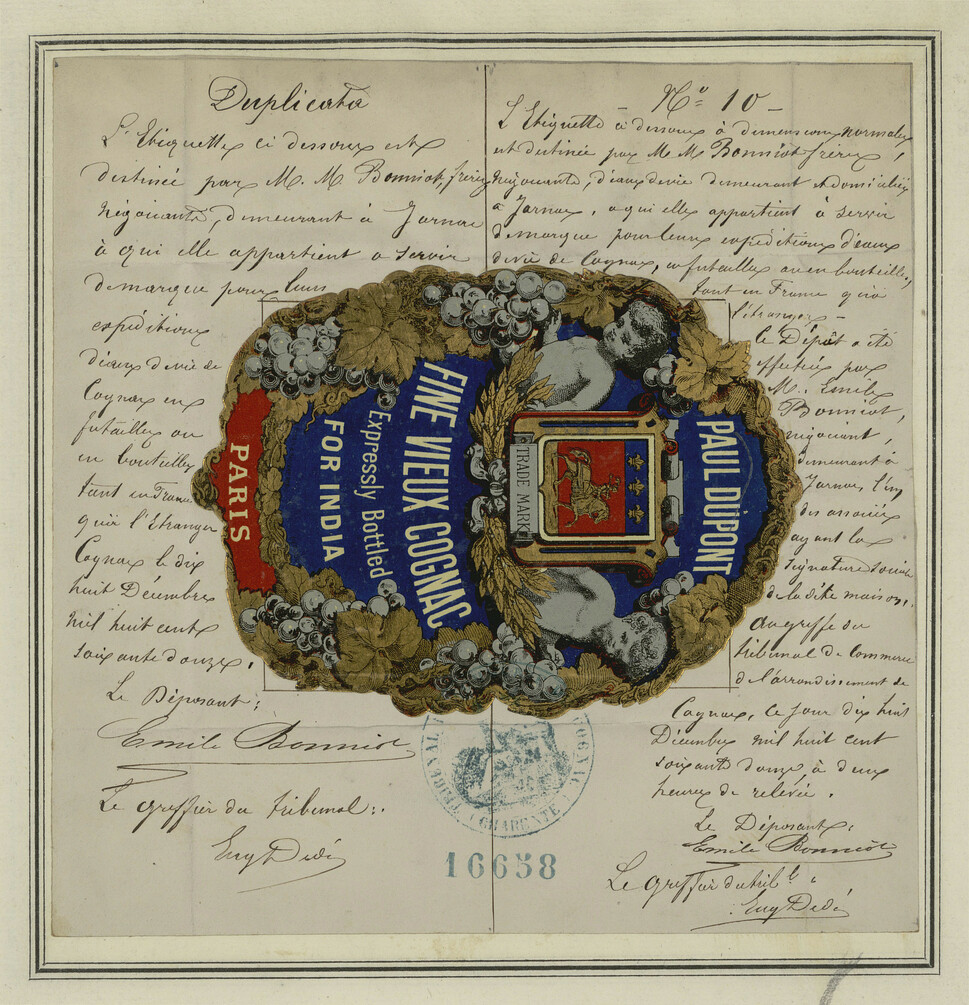 Duplicata
L'Etiquette ci dessous est
destinée par M. M. Bonniot, frères
négociants, demeurant à Jarnac
à qui elle appartient a servir
de marque pour leurs
expéditions
d'eaux de vie de
Cognac en
futailles ou
en bouteilles
tant en France
qu'à l'Etranger
Cognac le dix
huit Décembre
mil huit cent
soixante douze.
Le Déposant:
Emile Bonniot
Le greffier du tribunal:
Eug Dedé
No 10
L'Etiquette ci dessous à dimensions normales
est destinée par M M Bonniot frères,
négociants, d'eaux de vie demeurant et domiciliés
a Jarnac, a qui elle appartient à servir
de marque pour leurs expéditions d'eaux
de vie de Cognac, en futailles ou en bouteilles,
tant en France qu'à
l'étranger
Le Dépôt a été
effectué par
M. Emile
Bonniot,
négociant,
demeurant à
Jarnac, l'un
des associés
ayant la
signature sociale
de la dite maison.
Au greffe du
tribunal de Commerce
de l'arrondissement de
Cognac, ce jour dix huit
Décembre mil huit cent
soixante douze, à deux
heures de relevée.
Le Déposant:
Emile Bonniot
Le greffier du tribl:
Eug Dedé
PAUL DUPONT
TRADE MARK
FINE VIEUX COGNAC
Expressly Bottled
FOR INDIA
PARIS
COGNAC
CHARENTE
16658